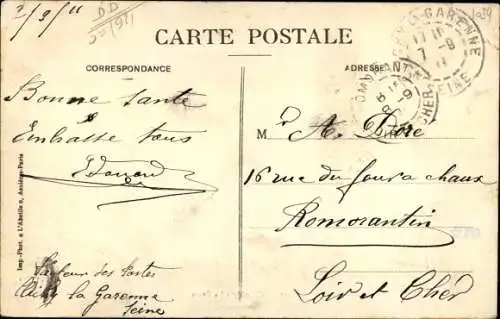 7/9/11
CARTE POSTALE
CORRESPONDANCE
ADRESSE
LA GARENNE
7 -9
11
SEINE
ROMORANTIN
8 -9
CHER
Bonne santé
Embrasse tous
Edouard
M. A. Doré
16 rue du four à chaux
Romorantin
Loir et Cher
Facteur des Postes
la Garenne
Seine
Imp.-Phot. « L'Abeille », Asnières-Paris